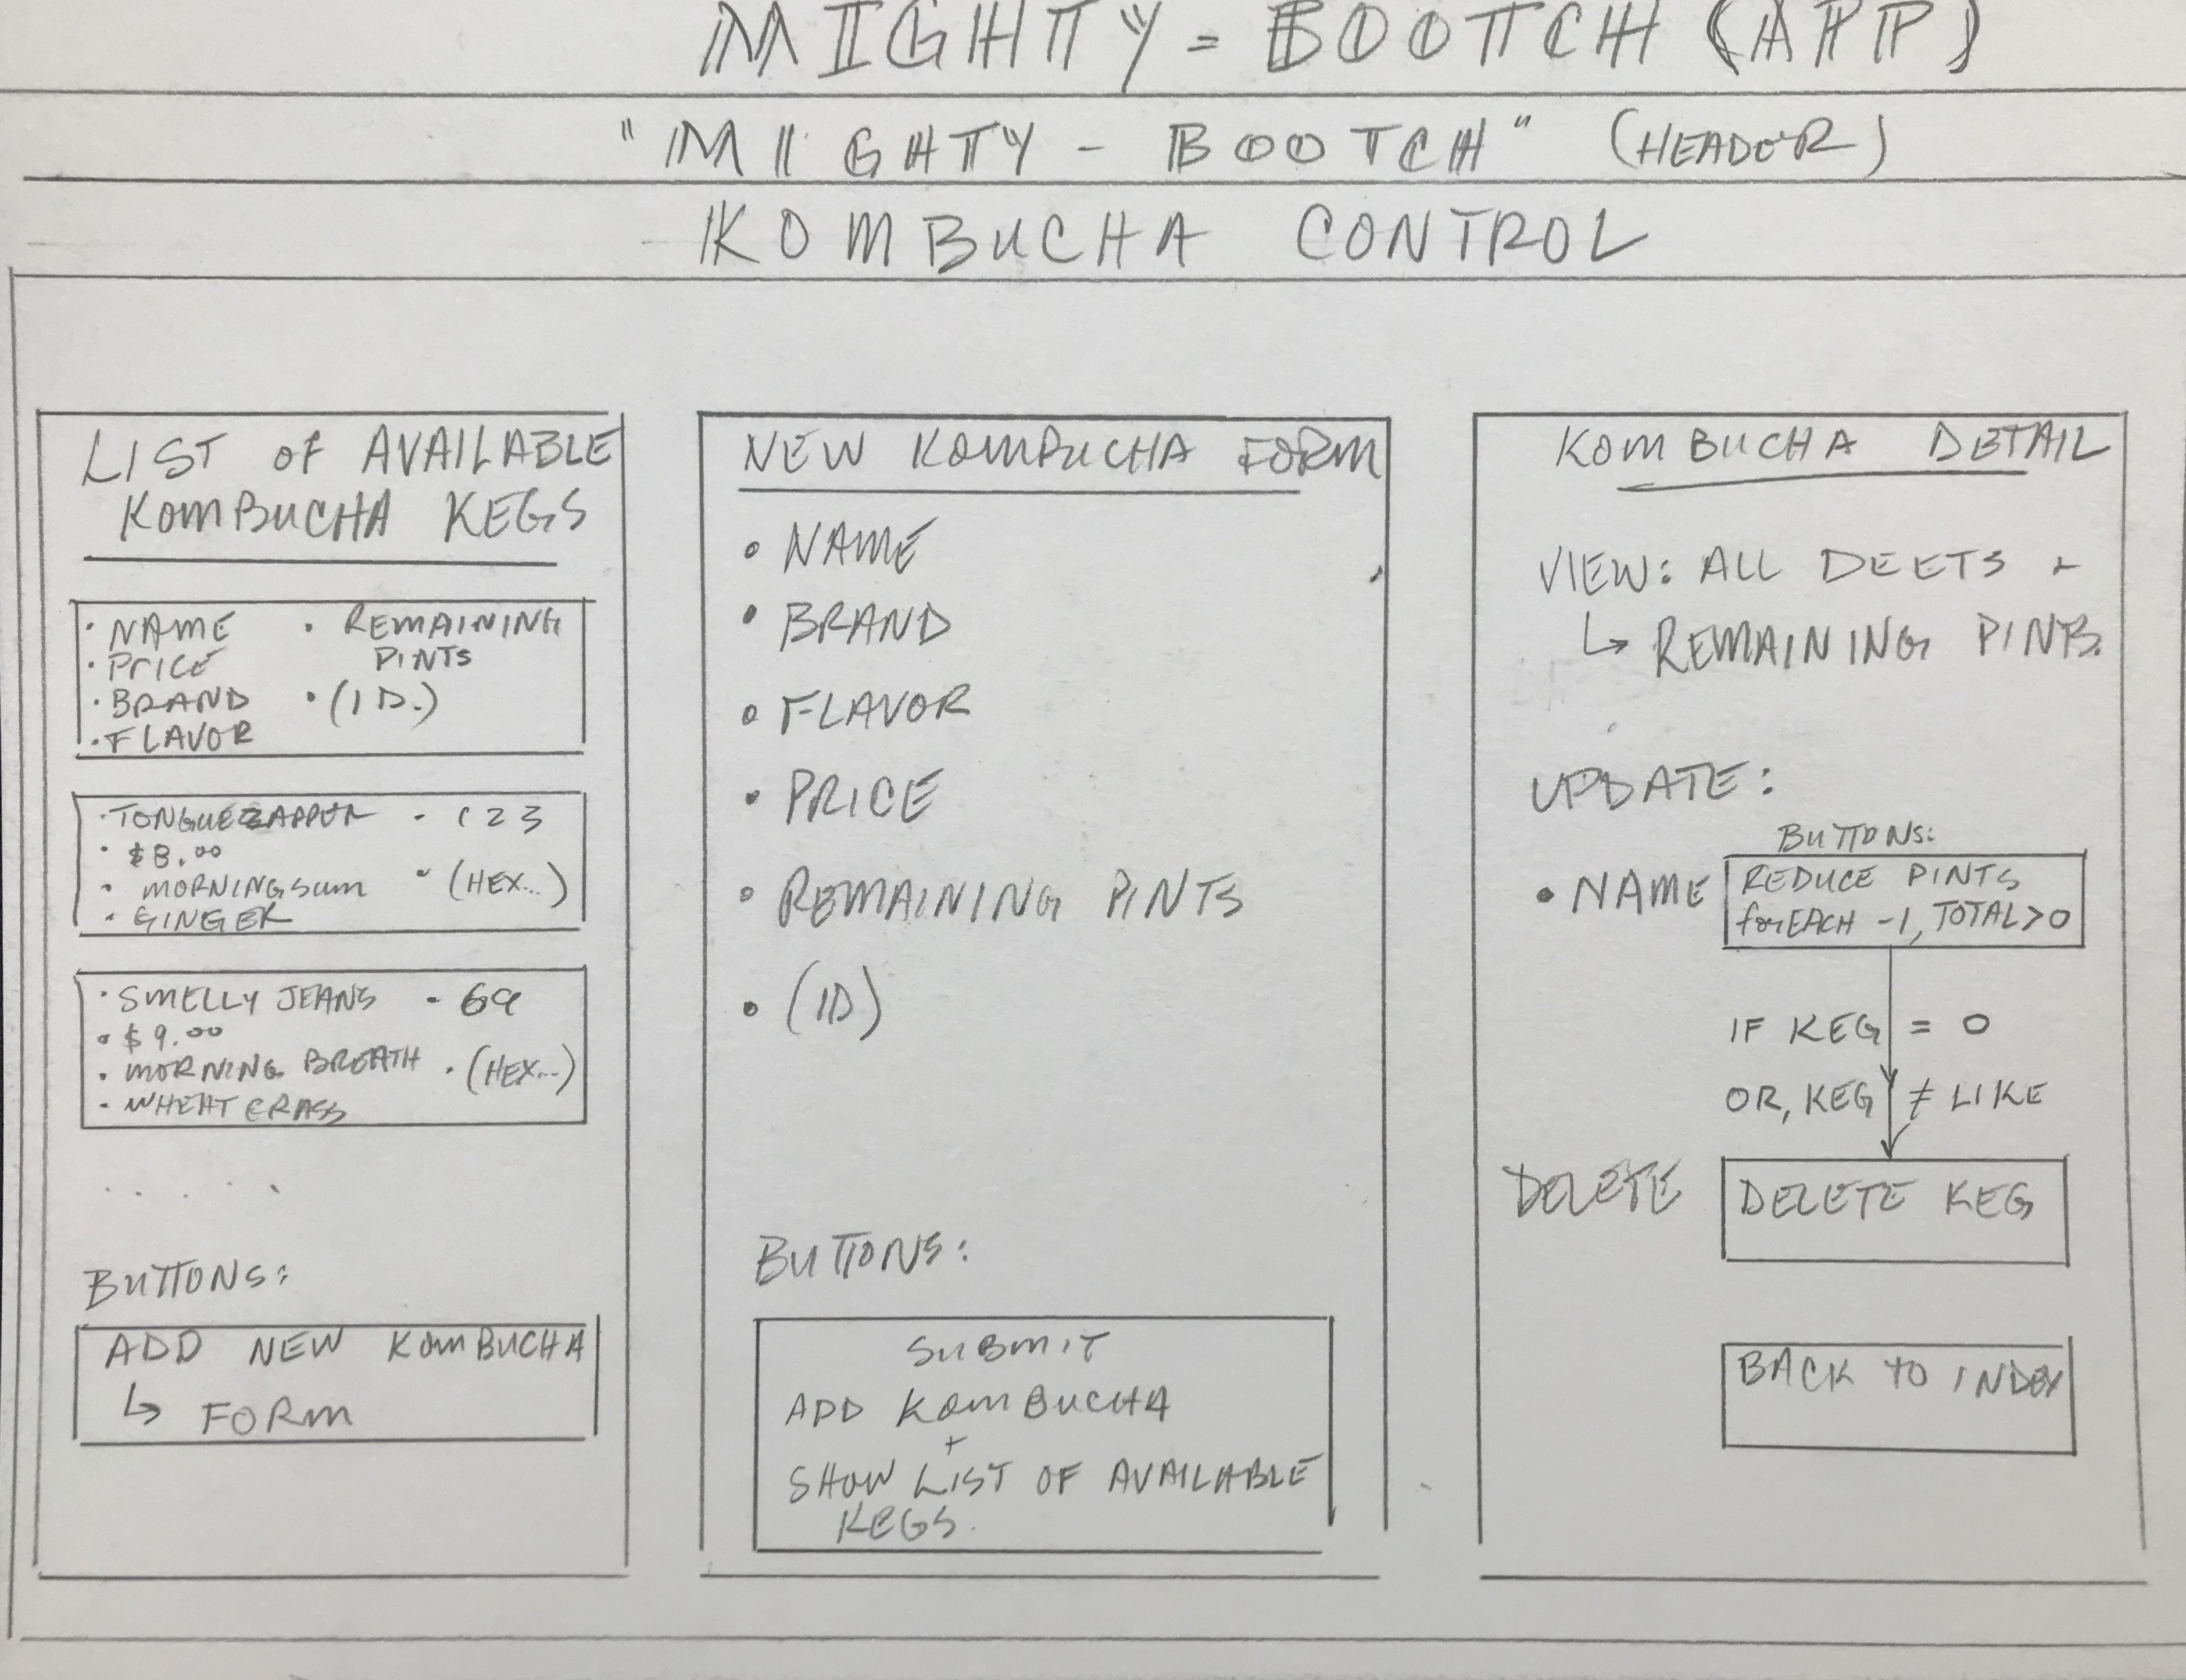 MIGHTY = BOOTCH (APP)
"MIGHTY - BOOTCH" (HEADER)
KOMBUCHA CONTROL
LIST OF AVAILABLE
KOMBUCHA KEGS
• NAME • REMAINING
PINTS
• PRICE
• BRAND • (ID.)
• FLAVOR
• TONGUEZAPPER - 123
• $8.00
• MORNINGSUM • (HEX...)
• GINGER
• SMELLY JEANS - 69
• $9.00
• MORNING BREATH • (HEX...)
• WHEATGRASS
. . . . .
BUTTONS:
ADD NEW KOMBUCHA
↳ FORM
NEW KOMBUCHA FORM
• NAME
• BRAND
• FLAVOR
• PRICE
• REMAINING PINTS
• (ID)
BUTTONS:
SUBMIT
ADD KOMBUCHA
+
SHOW LIST OF AVAILABLE
KEGS.
KOMBUCHA DETAIL
VIEW: ALL DEETS +
↳ REMAINING PINTS.
UPDATE:
BUTTONS:
• NAME REDUCE PINTS
forEACH -1, TOTAL>0
IF KEG = 0
OR, KEG ≠ LIKE
DELETE DELETE KEG
BACK TO INDEX